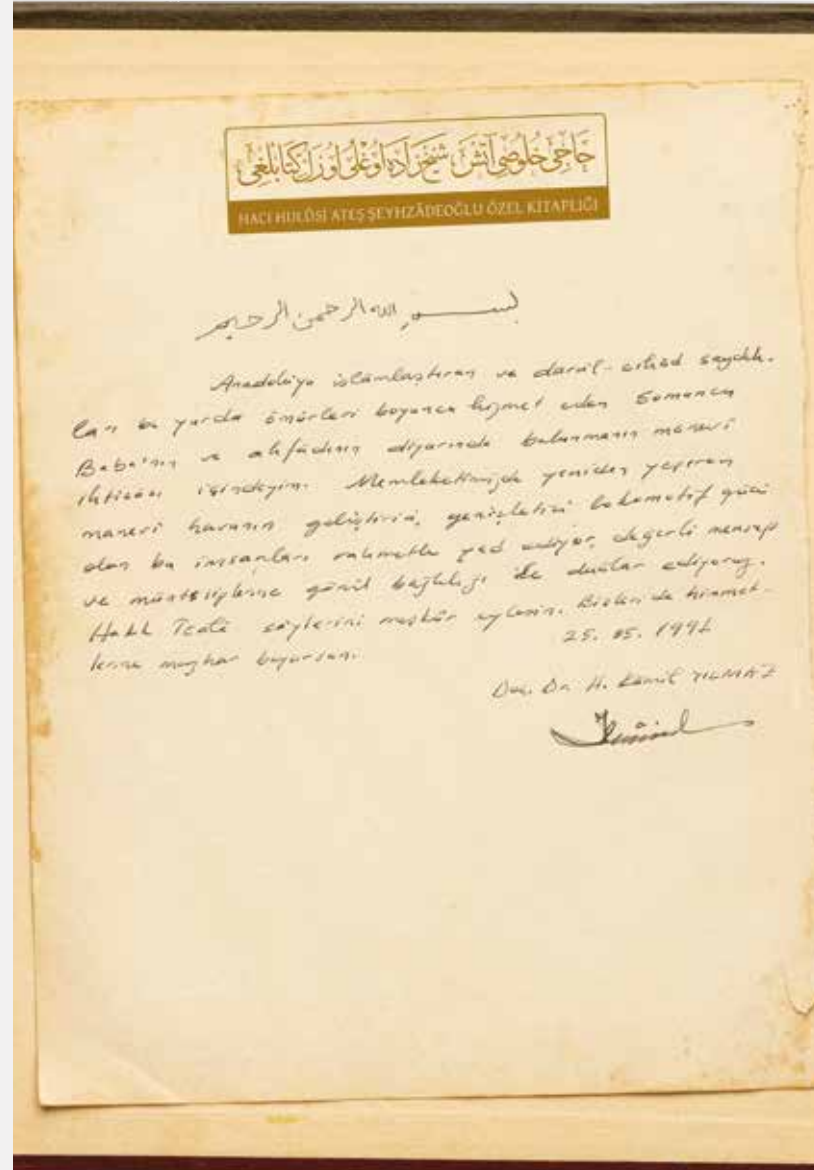 حاجى خلوصى آتش شيخزاده اوغلى اوزل كتابلغى
HACI HULÛSİ ATEŞ ŞEYHZÂDEOĞLU ÖZEL KİTAPLIĞI
بسم الله الرحمن الرحيم
Anadoluyu islâmlaştıran ve darül-cihâd saydık-
ları bu yurda ömürleri boyunca hizmet eden Somuncu
Baba'nın ve ahfâdının diyarında bulunmanın manevî
içindeyim. Memleketimizde yeniden yeşeren
manevî havanın geliştirici, genişletici lokomotif gücü
olan bu insanları rahmetle yad ediyor, değerli mensup
ve müntesiplerine gönül bağlılığı ile dualar ediyoruz.
Hakk Teâlâ sa'ylerini meşkûr eylesin. Bizleri de himmet-
lerine mazhar buyursun.
25. 05. 1992
Doç. Dr. H. Kâmil YILMAZ